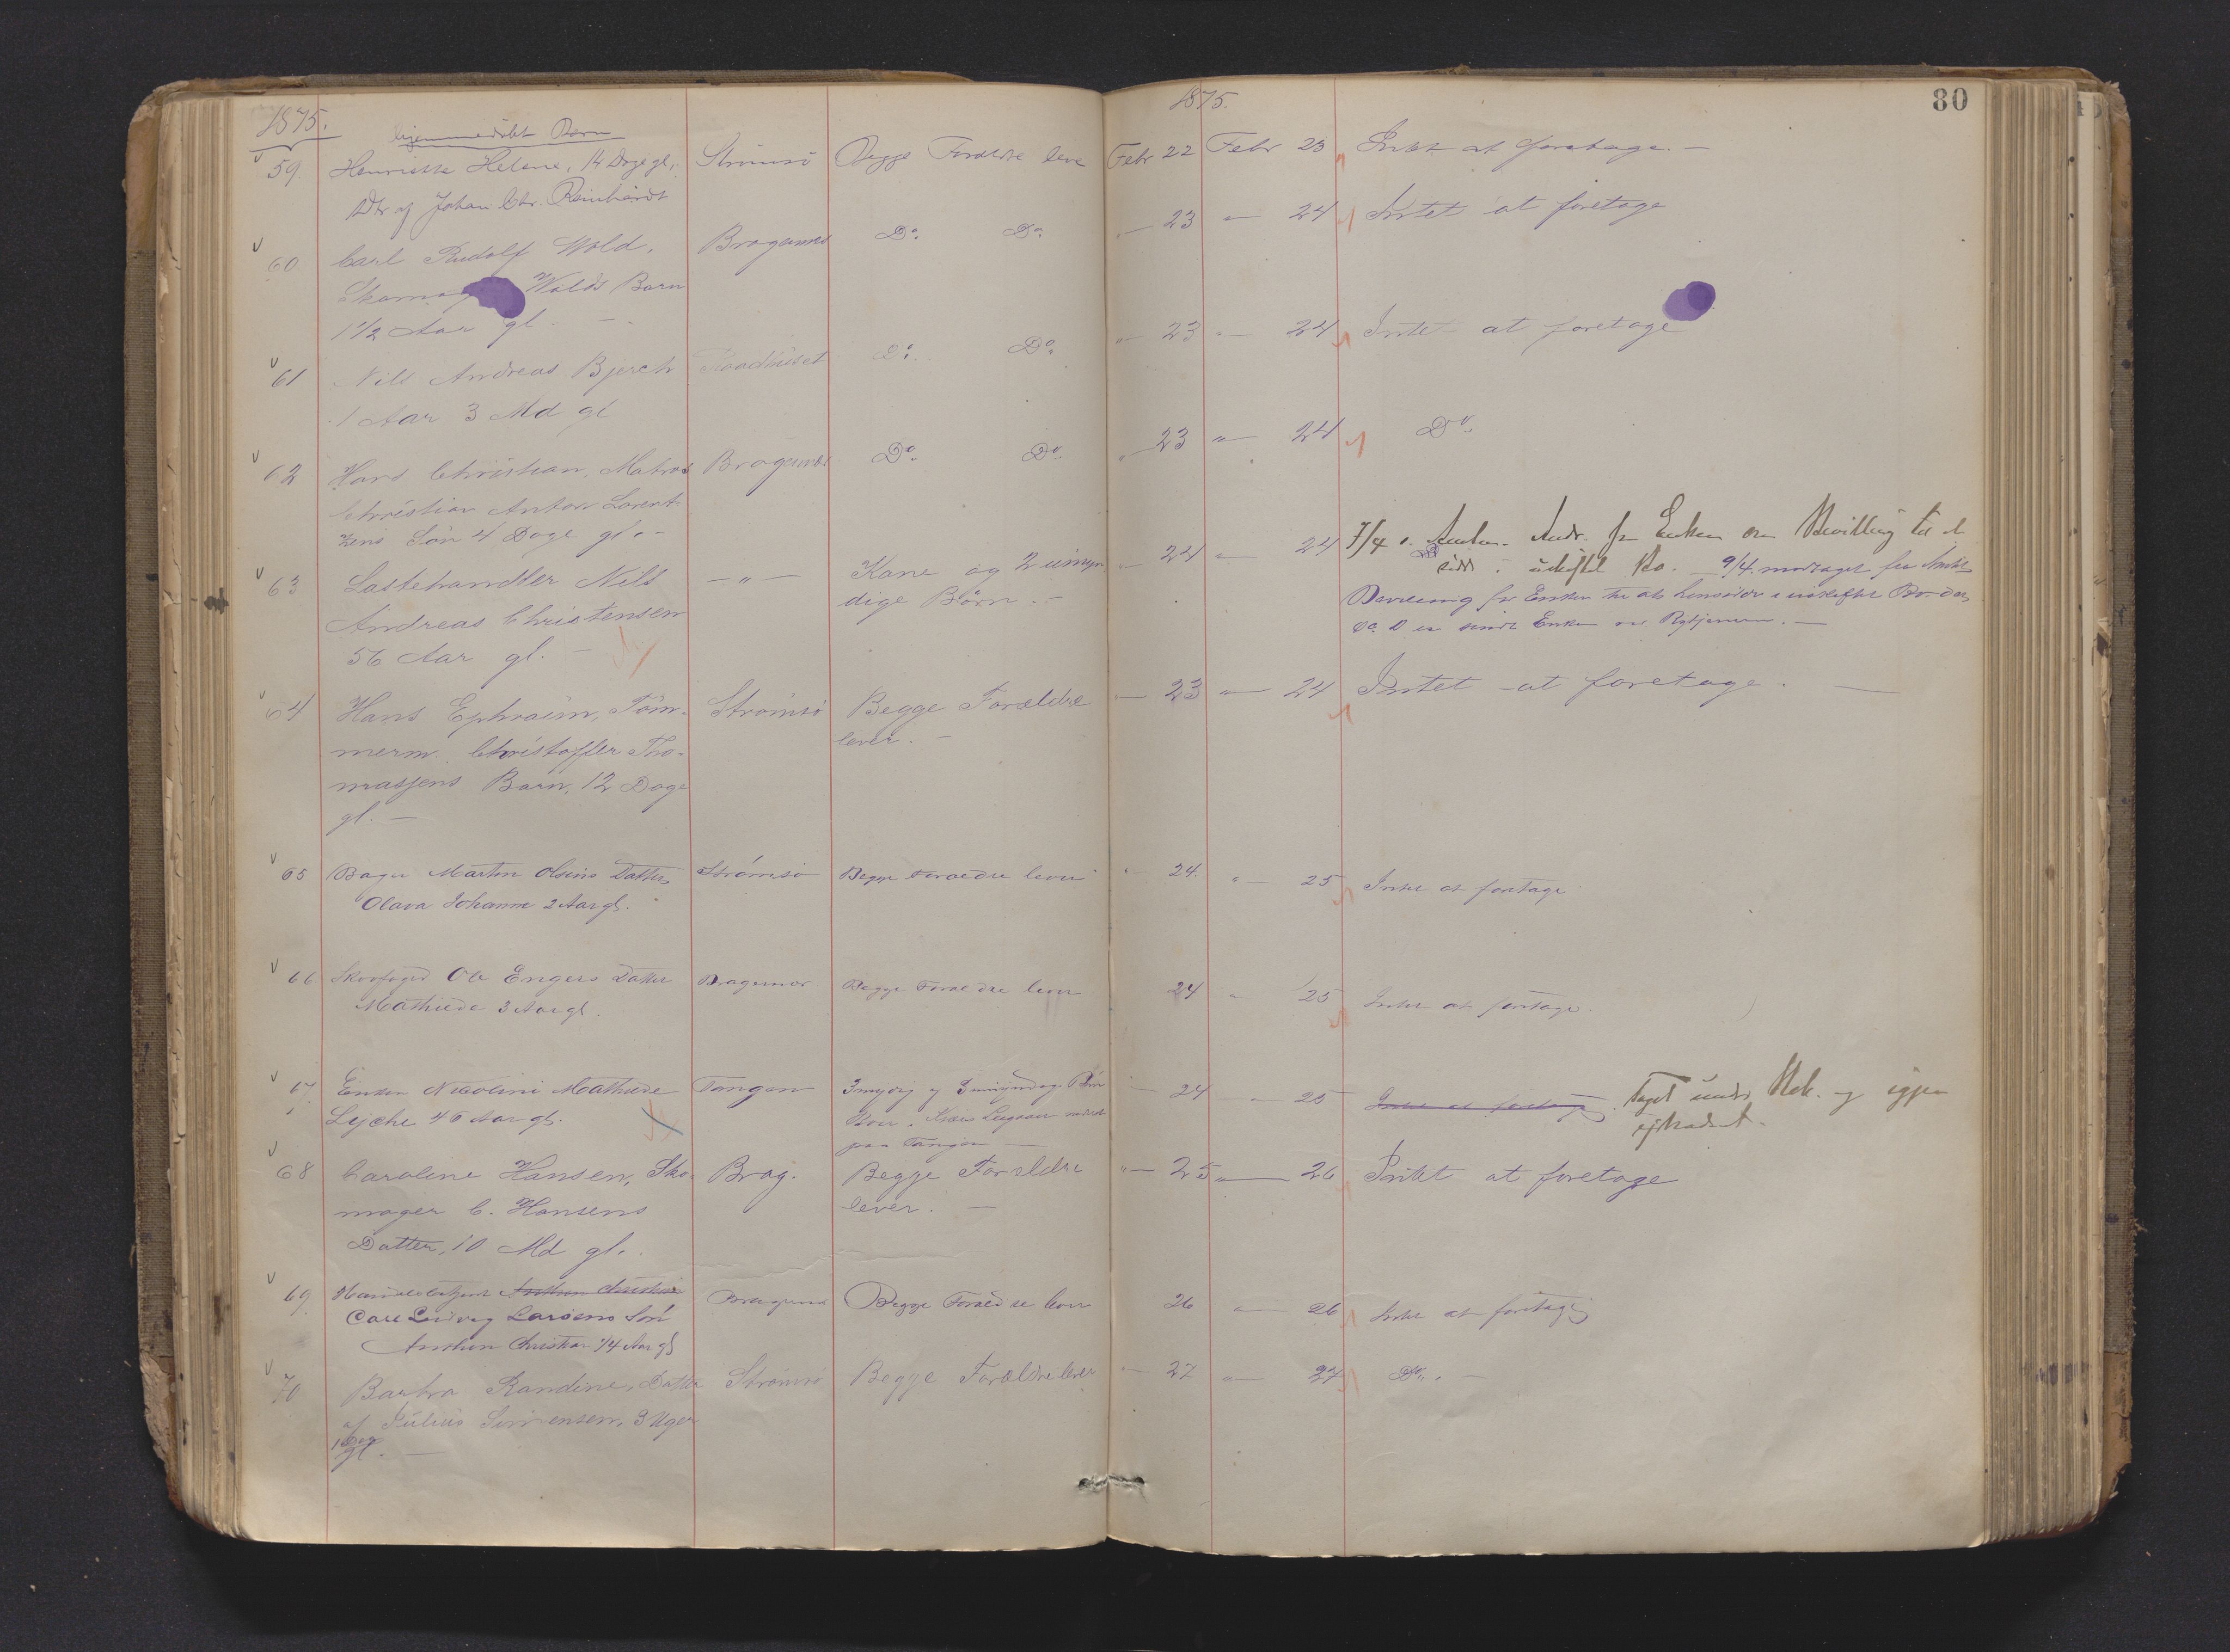 1875. 1875. 80
hjemmedøbt Barn
59. Henriette Helene, 14 Dage gl., Strömsö Begge Forældre leve Febr 22 Febr 23 Intet at foretage. —
Dtr af Johan Chr. Reinhardt
60 Carl Rudolf Wold, Bragernes Do. Do. — 23 " — 24 Intet at foretage
Skomag Wolds Barn
1 1/2 Aar gl. —
61 Nils Andreas Bjerch Raadhuset Do. Do. " — 23 " — 24 Intet at foretage
1 Aar 3 Md gl
62 Hans Christian, Matros Bragernes Do. Do. " — 23 " — 24 Do.
Christian Anton Lorent-
zens Sön 4 Dage gl. —
63 Lastehandler Nils — " — Kone og 2 umyn- " — 24 " — 24 7/4 Andr. fra Enken om Bevilling til at
Andreas Christensen dige Börn. — sidde i uskiftet Bo. — 9/4 modtaget fra Amtet
56 Aar gl. — Bevilling for Enken til at hensidde i uskiftet Bo
sendt Enken
64 Hans Ephraim, Töm- Strömsö Begge Forældre — 23 " — 24 Intet at foretage. —
merm. Christoffer Tho- lever. —
massens Barn, 12 Dage
gl. —
65 Bager Marten Olsens Datter Strömsö Begge Foraeldre lever " 24. " — 25 Intet at foretage
Olava Johanne 2 Aar gl.
66 Skovfoged Ole Engers Datter Bragernes Begge Foraeldre lever 24 " 25 Intet at foretage
Mathilde 3 Aar gl.
67 Enken Nicoline Mathilde Tangen 3 myndig og 3 umyndige Börn — 24 — 25 Intet at foretage. Taget under Beh. og igjen
Lyche 46 Aar gl. Boer extradert.
paa Tangen —
68 Caroline Hansen, Sko- Brag. Begge Forældre " — 25 " — 26 Intet at foretage
mager C. Hansens lever. —
Datter, 10 Md gl.
69. Handelsbetjent Anthon Christian Bragernes Begge Foraeldre lever 26 " — 26 Intet at foretage
Carl Ludvig Larsens Sön
Anthon Christian 1/4 Aar gl
70 Barbra Randine, Datter Strömsö Begge Forældre lever — 27 " — 27 Do. —
af Julius Simensen, 3 Uger
1 Dag
gl. —